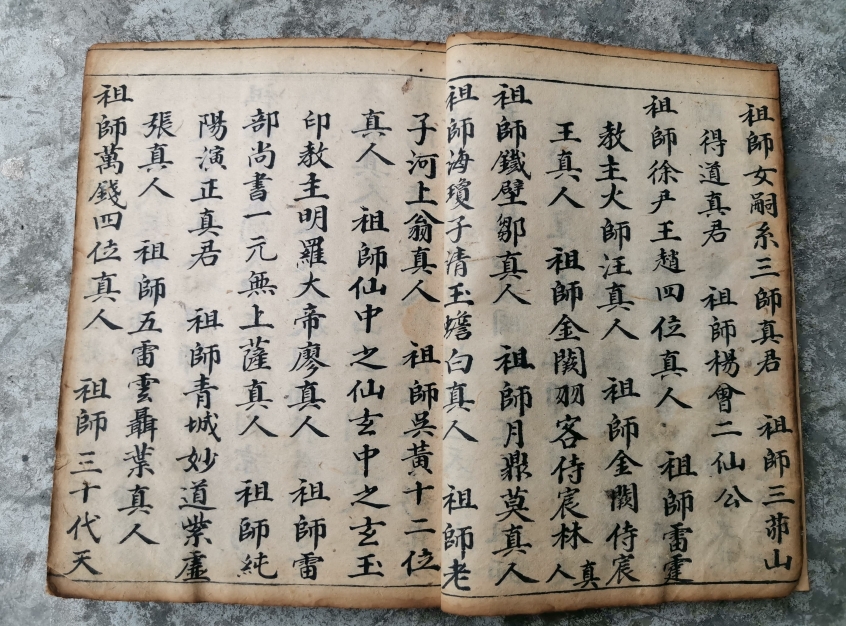 祖師女嗣系三師真君 祖師三茆山
得道真君 祖師楊曾二仙公
祖師徐尹王趙四位真人 祖師雷霆
教主火師汪真人 祖師金闕侍宸
王真人 祖師金闕羽客侍宸林真人
祖師鐵壁鄒真人 祖師月鼎莫真人
祖師海瓊子清玉蟾白真人 祖師老
子河上翁真人 祖師吳黃十二位
真人 祖師仙中之仙玄中之玄玉
印教主明羅大帝廖真人 祖師雷
部尚書一元無上薩真人 祖師純
陽演正真君 祖師青城妙道紫虛
張真人 祖師五雷雲聶葉真人
祖師萬錢四位真人 祖師三十代天